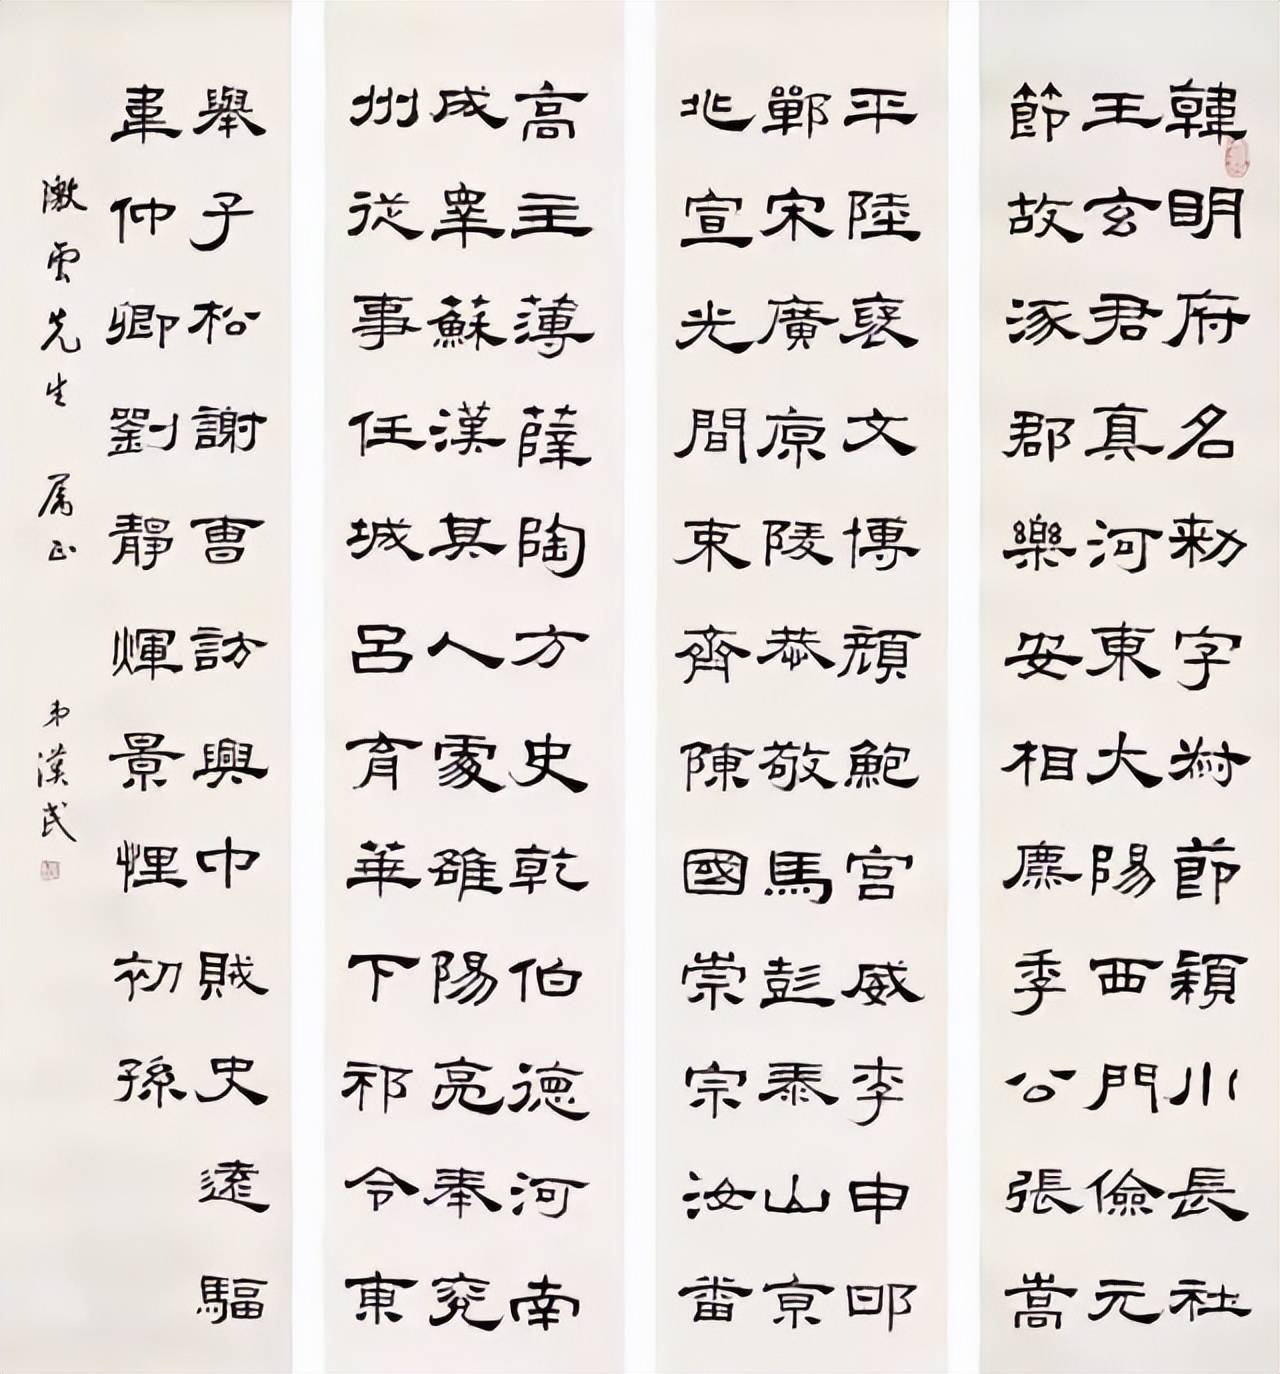 韓明府名勑字叔節穎川長社
王玄君真河東大陽西門儉元
節故涿郡樂安相麃季公張嵩
平陸裦文博顏鮑宮威李申邯
鄲宋廣原陵恭敬馬彭泰山京
兆宣光間束齊陳國崇宗汝番
高主薄薛陶方史乾伯德河南
成睾蘇漢其人處雒陽亮奉兖
州從事任城呂育華下祁令東
舉子松謝曹訪興巾賊史遠驅
韋仲卿劉靜煇景悝初孫
澂雲先生 屬正 弟漢民